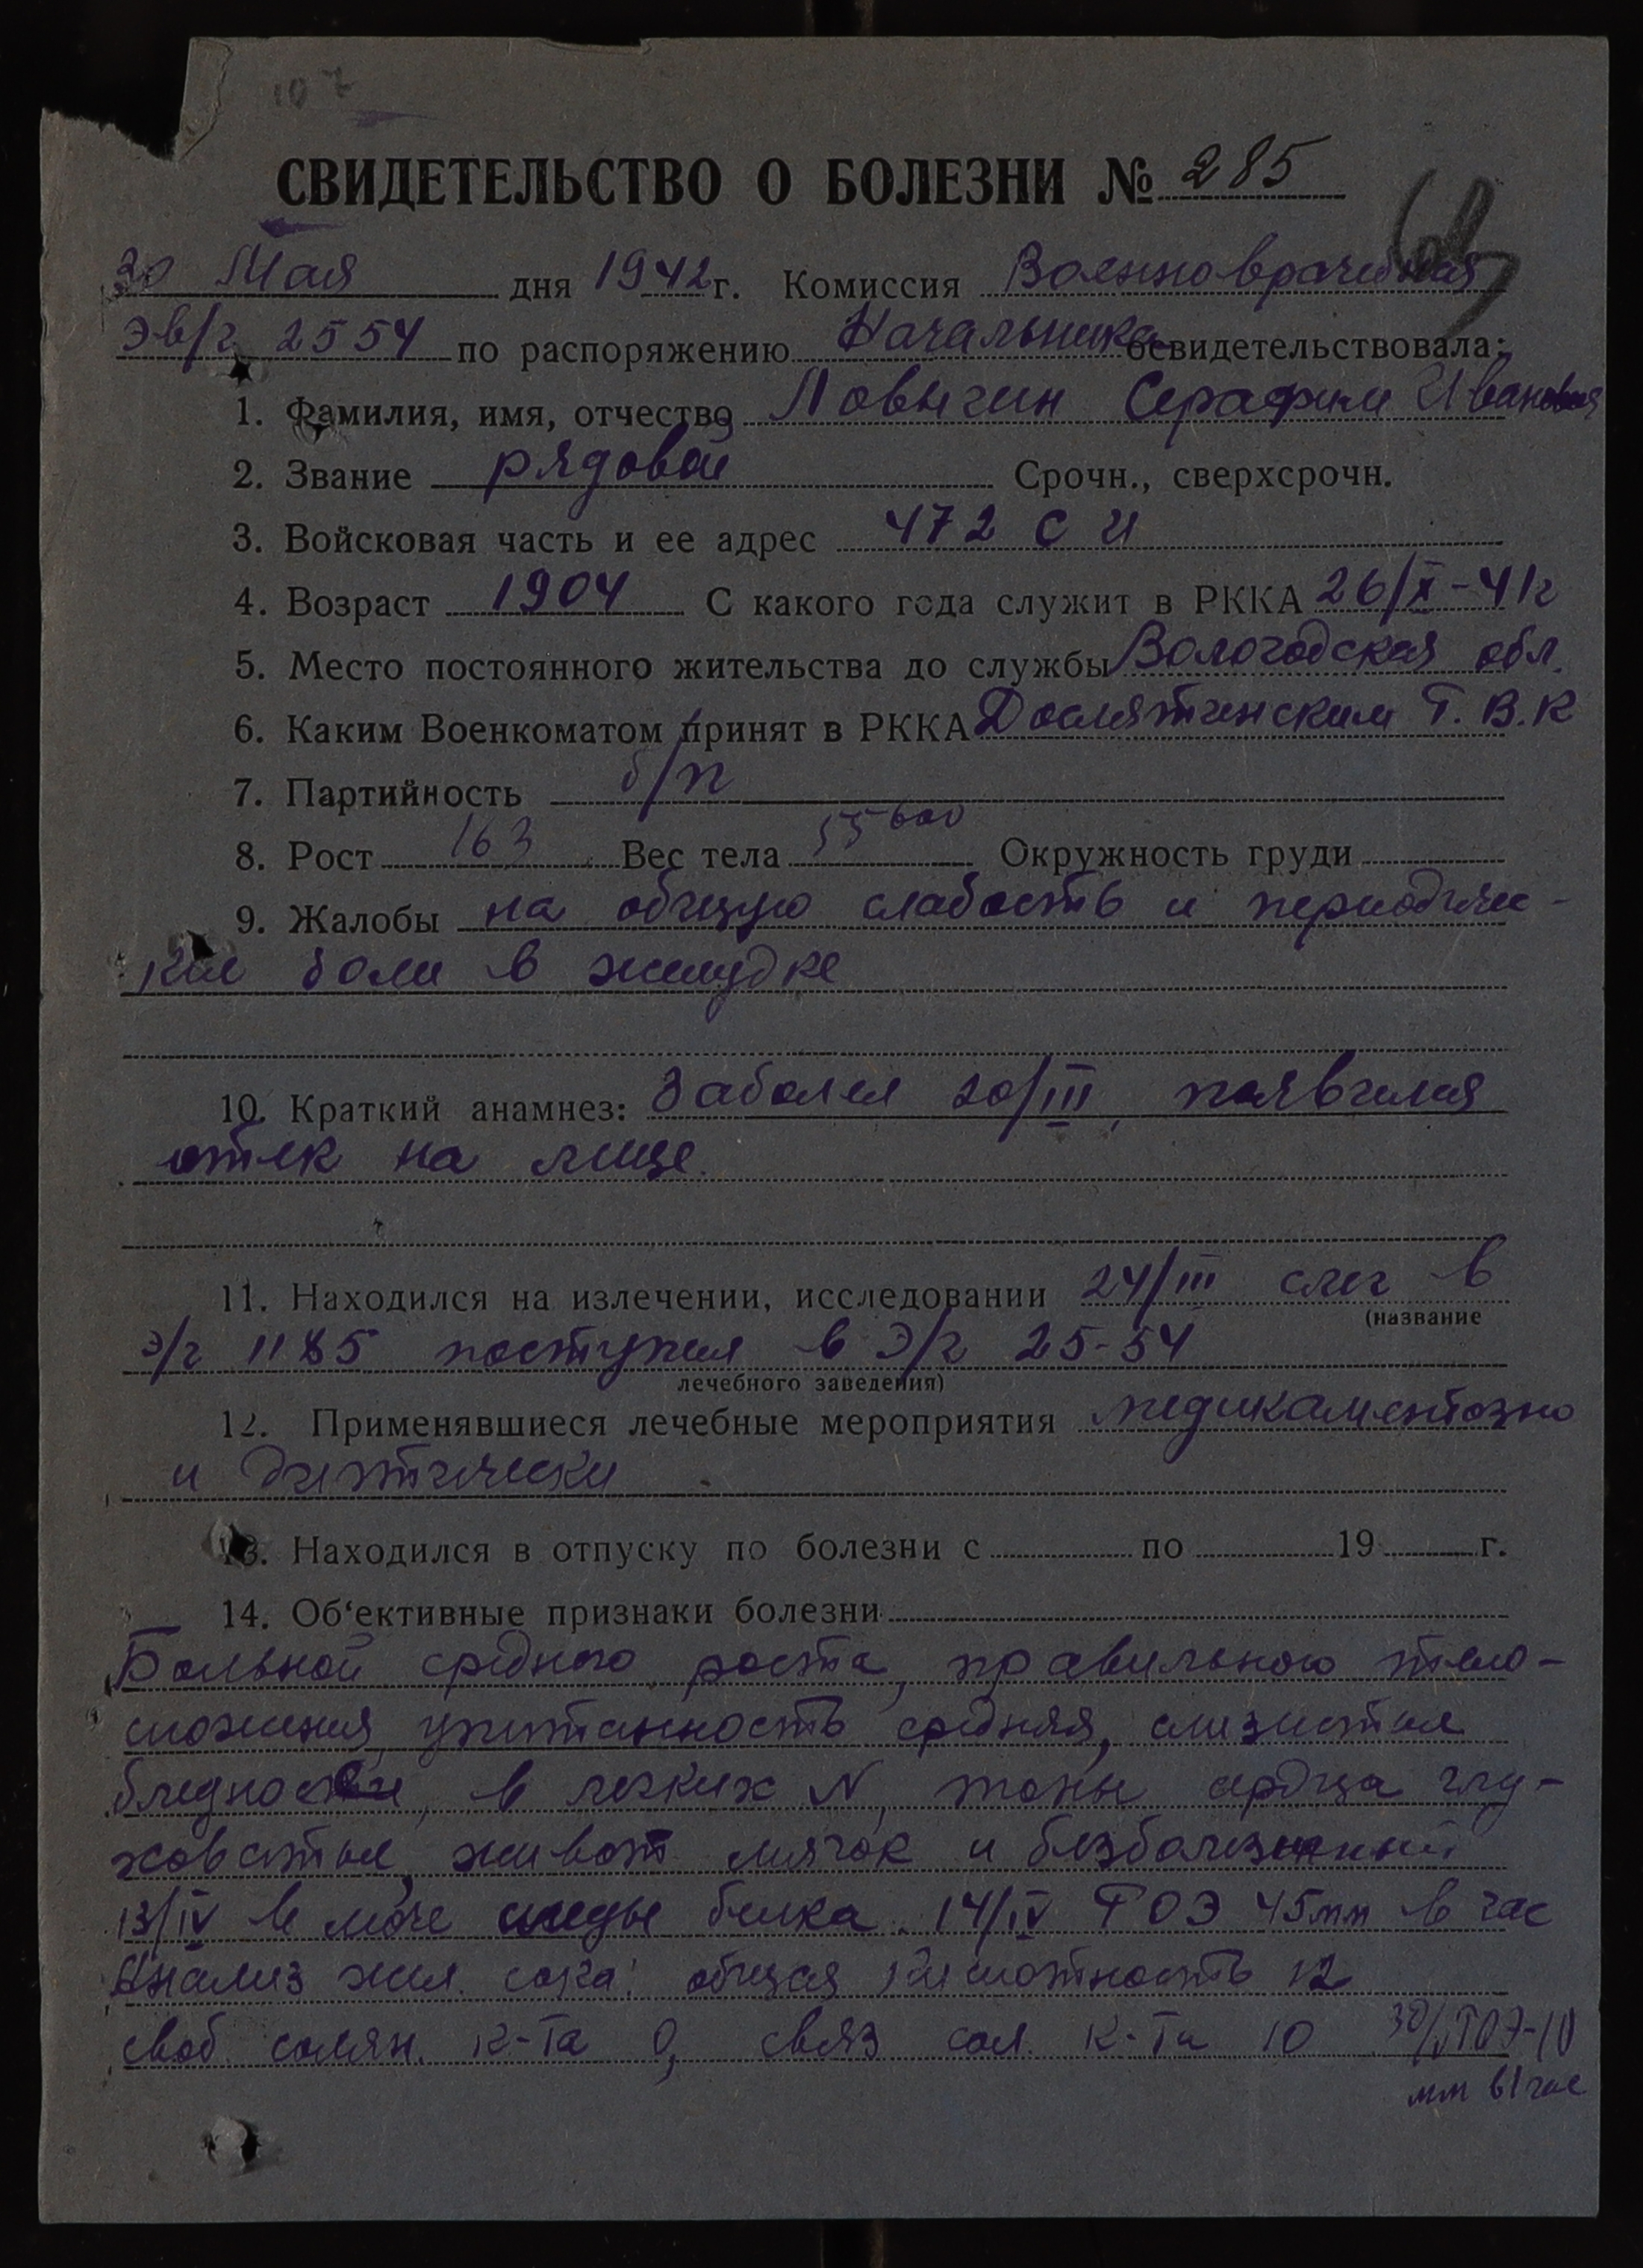 107
СВИДЕТЕЛЬСТВО О БОЛЕЗНИ № 285
30 Мая дня 1942 г. Комиссия Военноврачебная
эв/г 2554 по распоряжению Начальника освидетельствовала:
1. Фамилия, имя, отчество Ловыгин Серафим Иванович
2. Звание рядовой Срочн., сверхсрочн.
3. Войсковая часть и ее адрес 472 С П
4. Возраст 1904 С какого года служит в РККА 26/X-41г
5. Место постоянного жительства до службы Вологодская обл.
6. Каким Военкоматом принят в РККА Г.В.К
7. Партийность б/п
8. Рост 163 Вес тела 55600 Окружность груди
9. Жалобы на общую слабость и периодичес-
кие боли в желудке
10. Краткий анамнез: Заболел 20/III, появился
отек на лице.
11. Находился на излечении, исследовании 24/III слег в
(название
э/г 1185 поступил в Э/г 25-54
лечебного заведения)
12. Применявшиеся лечебные мероприятия медикаментозно
и диэтически
13. Находился в отпуску по болезни с по 19 г.
14. Об'ективные признаки болезни
Больной среднего роста, правильного тело-
сложения, упитанность средняя, слизистые
в легких N, тоны сердца глу-
ховатые, живот мягок и безболезненный
13/IV в моче следы белка. 14/IV РОЭ 45мм в час
Анализ жел. сока: общая кислотность 12
своб. солян. к-та 0, связ сол. к-та 10 30/V РОЭ-10
мм в 1 час